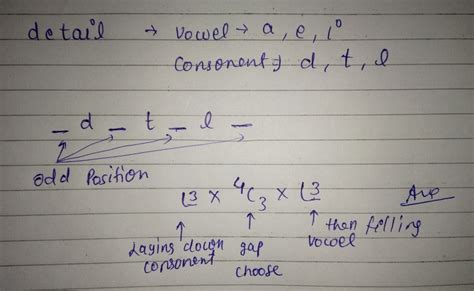 detail → vowel → a, e, i
Consonent → d, t, l
_ d _ t _ l _
odd Position
⌊3 × ⁴C₃ × ⌊3 Ans
Laying down consonent
gap choose
then filling vowel